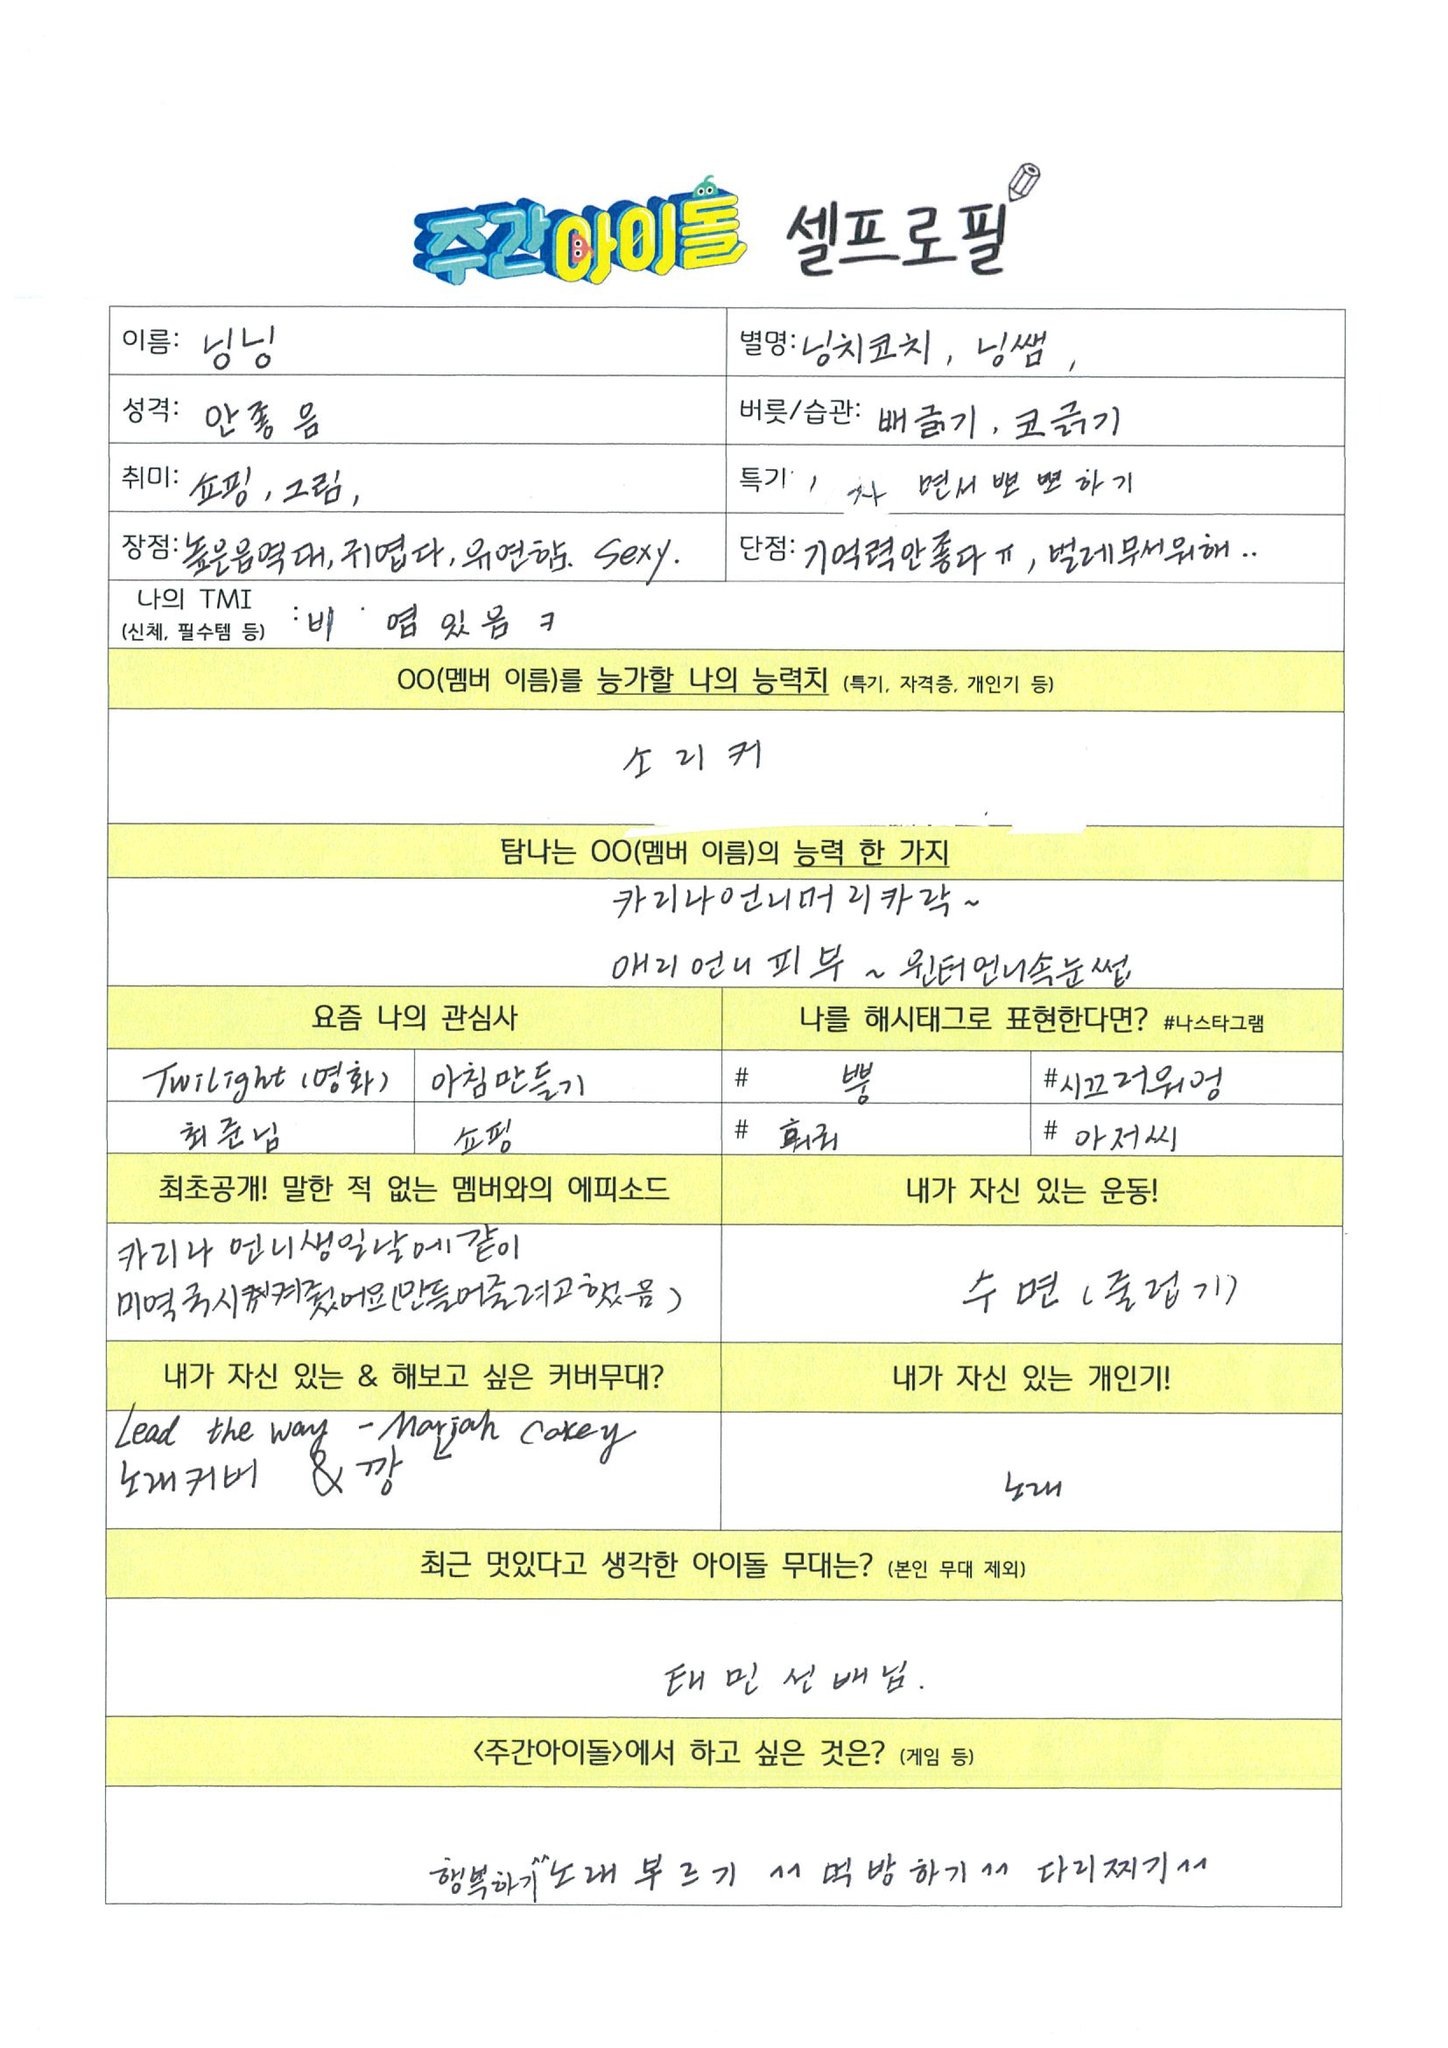 주간아이돌 셀프로필
이름: 닝닝
별명: 닝치코치, 닝쌤,
성격: 안좋음
버릇/습관: 배긁기, 코긁기
취미: 쇼핑, 그림,
특기, 자면서 뽀뽀하기
장점: 높은음역대, 귀엽다, 유연함. Sexy.
단점: 기억력안좋다ㅠ, 벌레무서워해..
나의 TMI
(신체, 필수템 등) : 비염있음ㅋ
OO(멤버 이름)를 능가할 나의 능력치 (특기, 자격증, 개인기 등)
소리커
탐나는 OO(멤버 이름)의 능력 한 가지
카리나언니머리카락~
애리언니피부~ 윈터언니속눈썹
요즘 나의 관심사
나를 해시태그로 표현한다면? #나스타그램
Twilight(영화)
아침만들기
# 뿡
#시끄러워엉
최준님
쇼핑
#
# 아저씨
최초공개! 말한 적 없는 멤버와의 에피소드
내가 자신 있는 운동!
카리나 언니생일날에같이
미역국시켜줬어요(만들어줄려고했음)
수면(줄넘기)
내가 자신 있는 & 해보고 싶은 커버무대?
내가 자신 있는 개인기!
Lead the way - Mariah Carey
노래커버 & 깡
노래
최근 멋있다고 생각한 아이돌 무대는? (본인 무대 제외)
태민선배님.
<주간아이돌>에서 하고 싶은 것은? (게임 등)
행복하기^^ 노래부르기 ^^ 먹방하기 ^^ 다리찌기 ^^